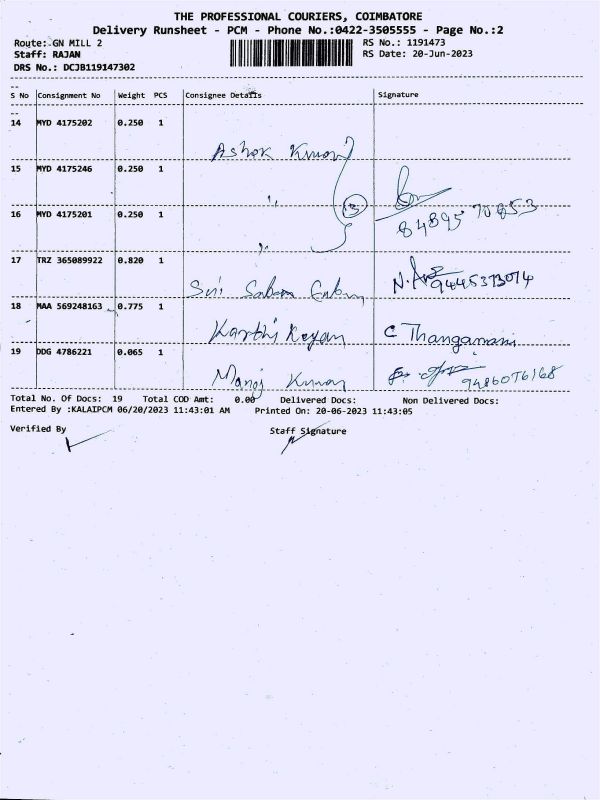 THE PROFESSIONAL COURIERS, COIMBATORE
Delivery Runsheet - PCM - Phone No.:0422-3505555 - Page No.:2
Route: GN MILL 2 RS No.: 1191473
Staff: RAJAN RS Date: 20-Jun-2023
DRS No.: DCJB119147302
S No Consignment No Weight PCS Consignee Details Signature
14 MYD 4175202 0.250 1
Ashok Kumar
15 MYD 4175246 0.250 1
" 3
16 MYD 4175201 0.250 1 84895 70853
"
17 TRZ 365089922 0.820 1
N. 9445373074
18 MAA 569248163 0.775 1
Karthi Keyan C Thangamani
19 DDG 4786221 0.065 1
Manoj Kumar 9486076168
Total No. Of Docs: 19 Total COD Amt: 0.00 Delivered Docs: Non Delivered Docs:
Entered By :KALAIPCM 06/20/2023 11:43:01 AM Printed On: 20-06-2023 11:43:05
Verified By Staff Signature